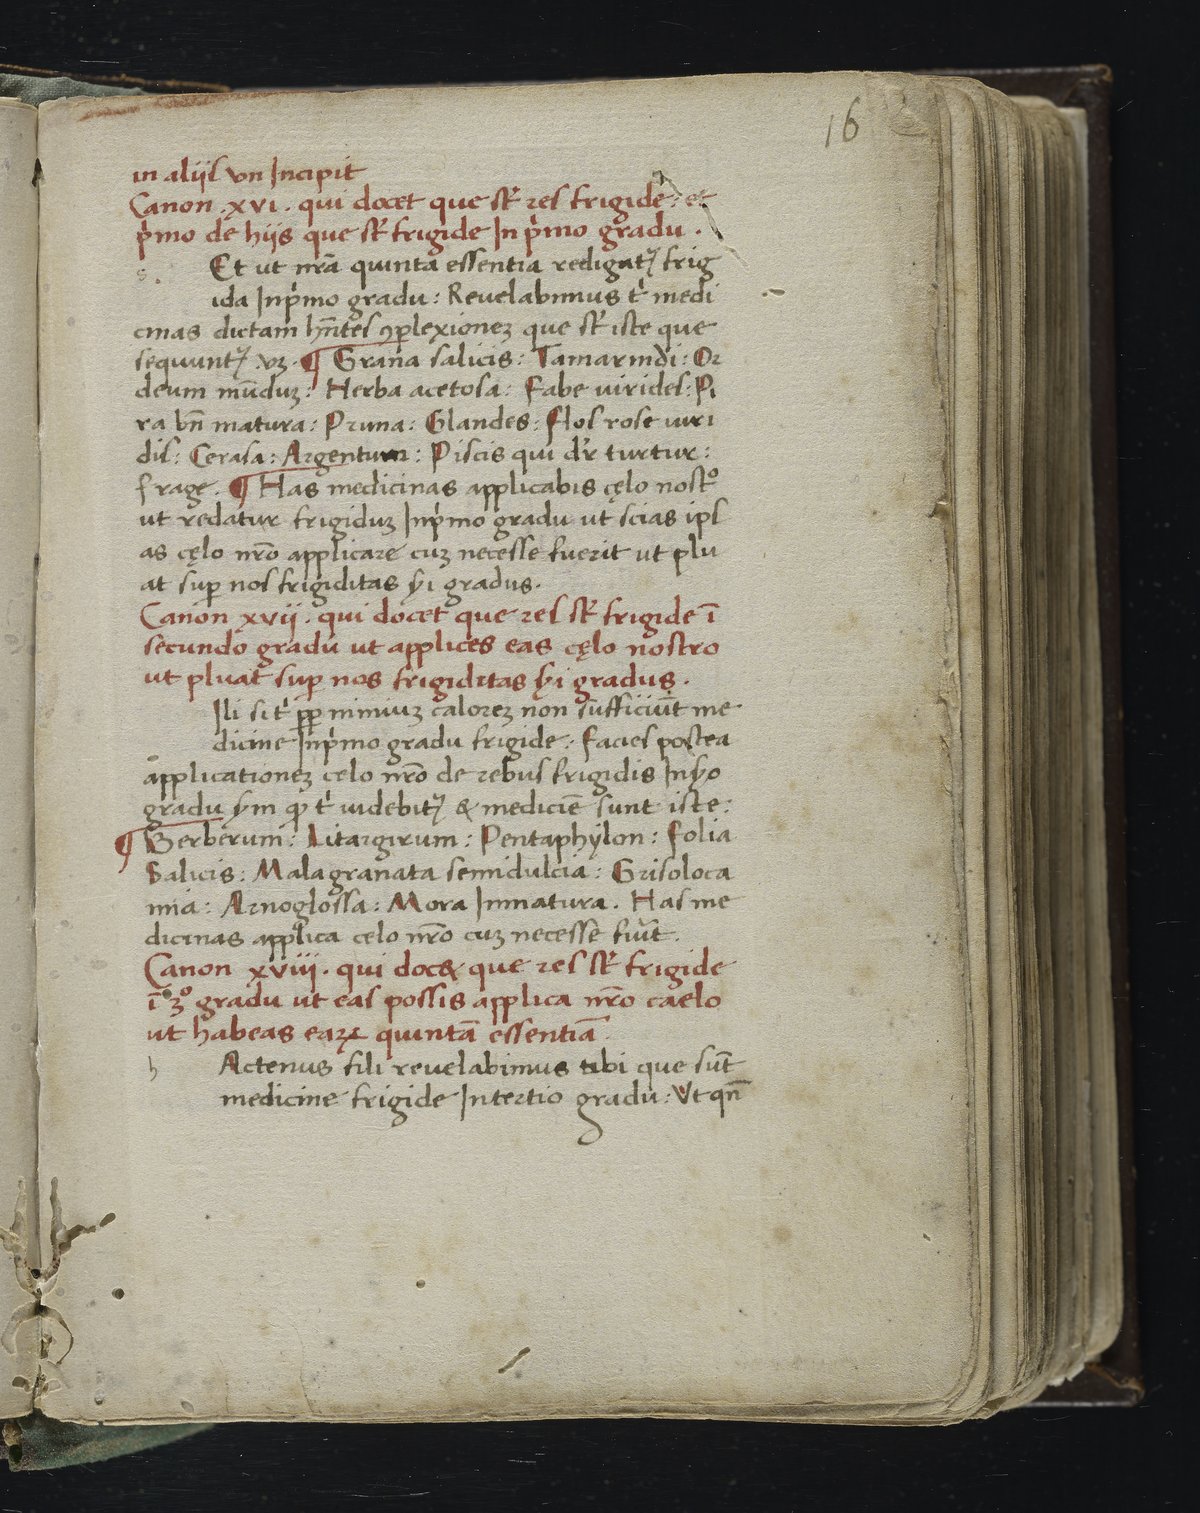 16
in aliis vn Incipit
Canon . xvi . qui docet que st̄ res frigide : et
p̓mo de hijs que st̄ frigide In p̓mo gradu .
s. Et ut nr̄a quinta essentia redigatꝭ frig
ida In p̓mo gradu : Reuelabimus t̓ medi
cinas dictam hn̄tes ꝯplexionez que st̄ iste que
sequuntꝭ .vz. ¶ Grana salicis : Tamarindi : Or
deum mūduz : Herba acetosa : Fabe virides : Pi
ra bn̄ matura : Pruna : Glandes : flos rose viri
dis : Cerasa : Argentum : Piscis qui dr̄ turtur :
frage . ¶ Has medicinas applicabis cęlo nostº
ut redatur frigiduz In p̓mo gradu ut scias ips
as cęlo nr̄o applicare cuz necesse fuerit ut plu
at suꝑ nos frigiditas pͥi gradus .
Canon xvii . qui docet que res st̄ frigide ī
secundo gradu ut applices eas cęlo nostro
ut pluat suꝑ nos frigiditas ẜi gradus .
Ili si t̓ ꝓp nimiuz calorez non sufficiūt me
dicine In p̓mo gradu frigide . Facies postea
applicationez celo nr̄o de rebus frigidis In ẜo
gradu ẜm ꝙ t̓ videbitꝭ & medicīe sunt iste :
¶ Berberum : Litargirum : Pentaphylon : folia
Salicis : Malagranata semidulcia : Grisoloca
mia : Arnoglossa : Mora Inmatura . Has me
dicinas applica celo nr̄o cuz necesse fuīt .
Canon xviii . qui doc& que res st̄ frigide
ī 3º gradu ut eas possis applica nr̄o caelo
ut habeas eaꝝ quintā essentiā .
h Actenus fili reuelabimus tibi que sūt
medicine frigide In tertio gradu : Vt qn̄